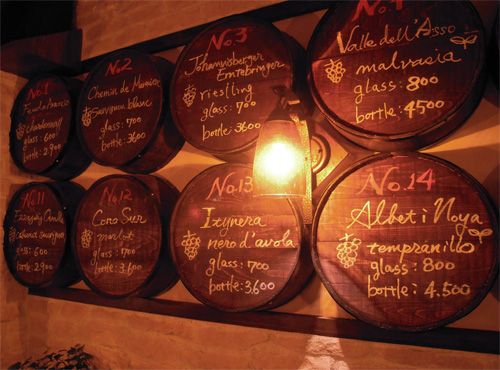 No.1
chardonnay
glass: 600
bottle: 2,900
No.2
Chemin de
Sauvignon blanc
glass: 600
bottle: 3,600
No.3
Johannisberger
Erntebringer
riesling
glass: 700
bottle: 3600
No.4
Valle dell'Asso
malvasia
glass: 800
bottle: 4500
No.11
glass: 600
bottle: 2,900
No.12
Cono Sur
merlot
glass: 700
bottle: 3,600
No.13
Itynera
nero d'avola
glass: 700
bottle: 3,600
No.14
Albet i Noya
tempranillo
glass: 800
bottle: 4.500